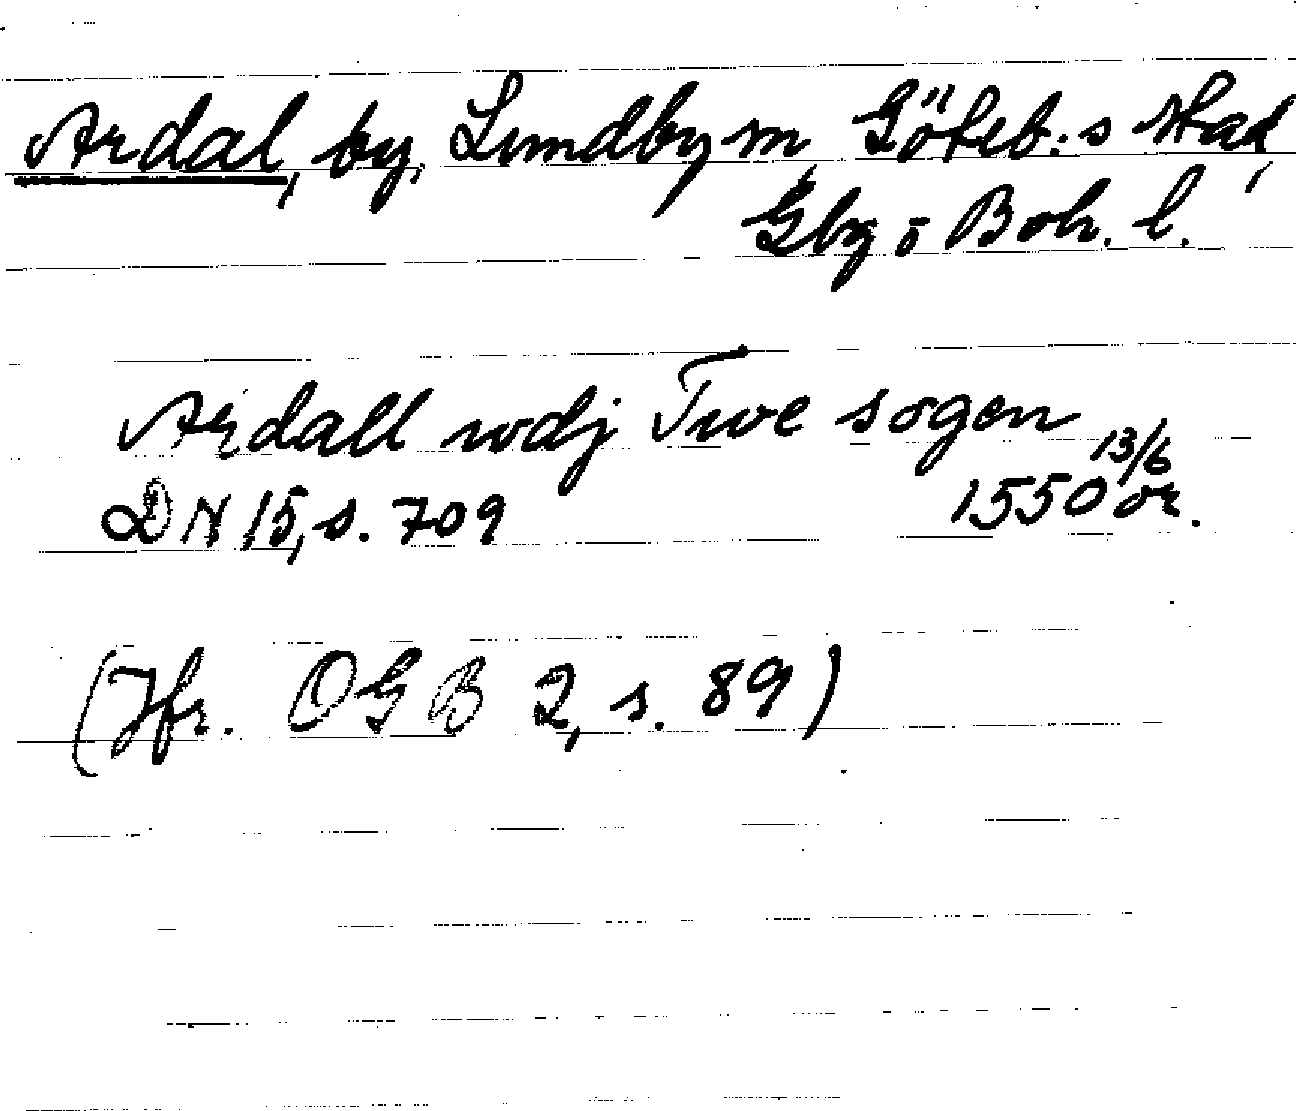 Ardal, by, Lundby sn, Göteb:s stad,
Gbg o Boh. l.
Ardall wdj Twe sogen
13/6
DN 15, s. 709 1550 or.
(Jfr. OGB 2, s. 89)